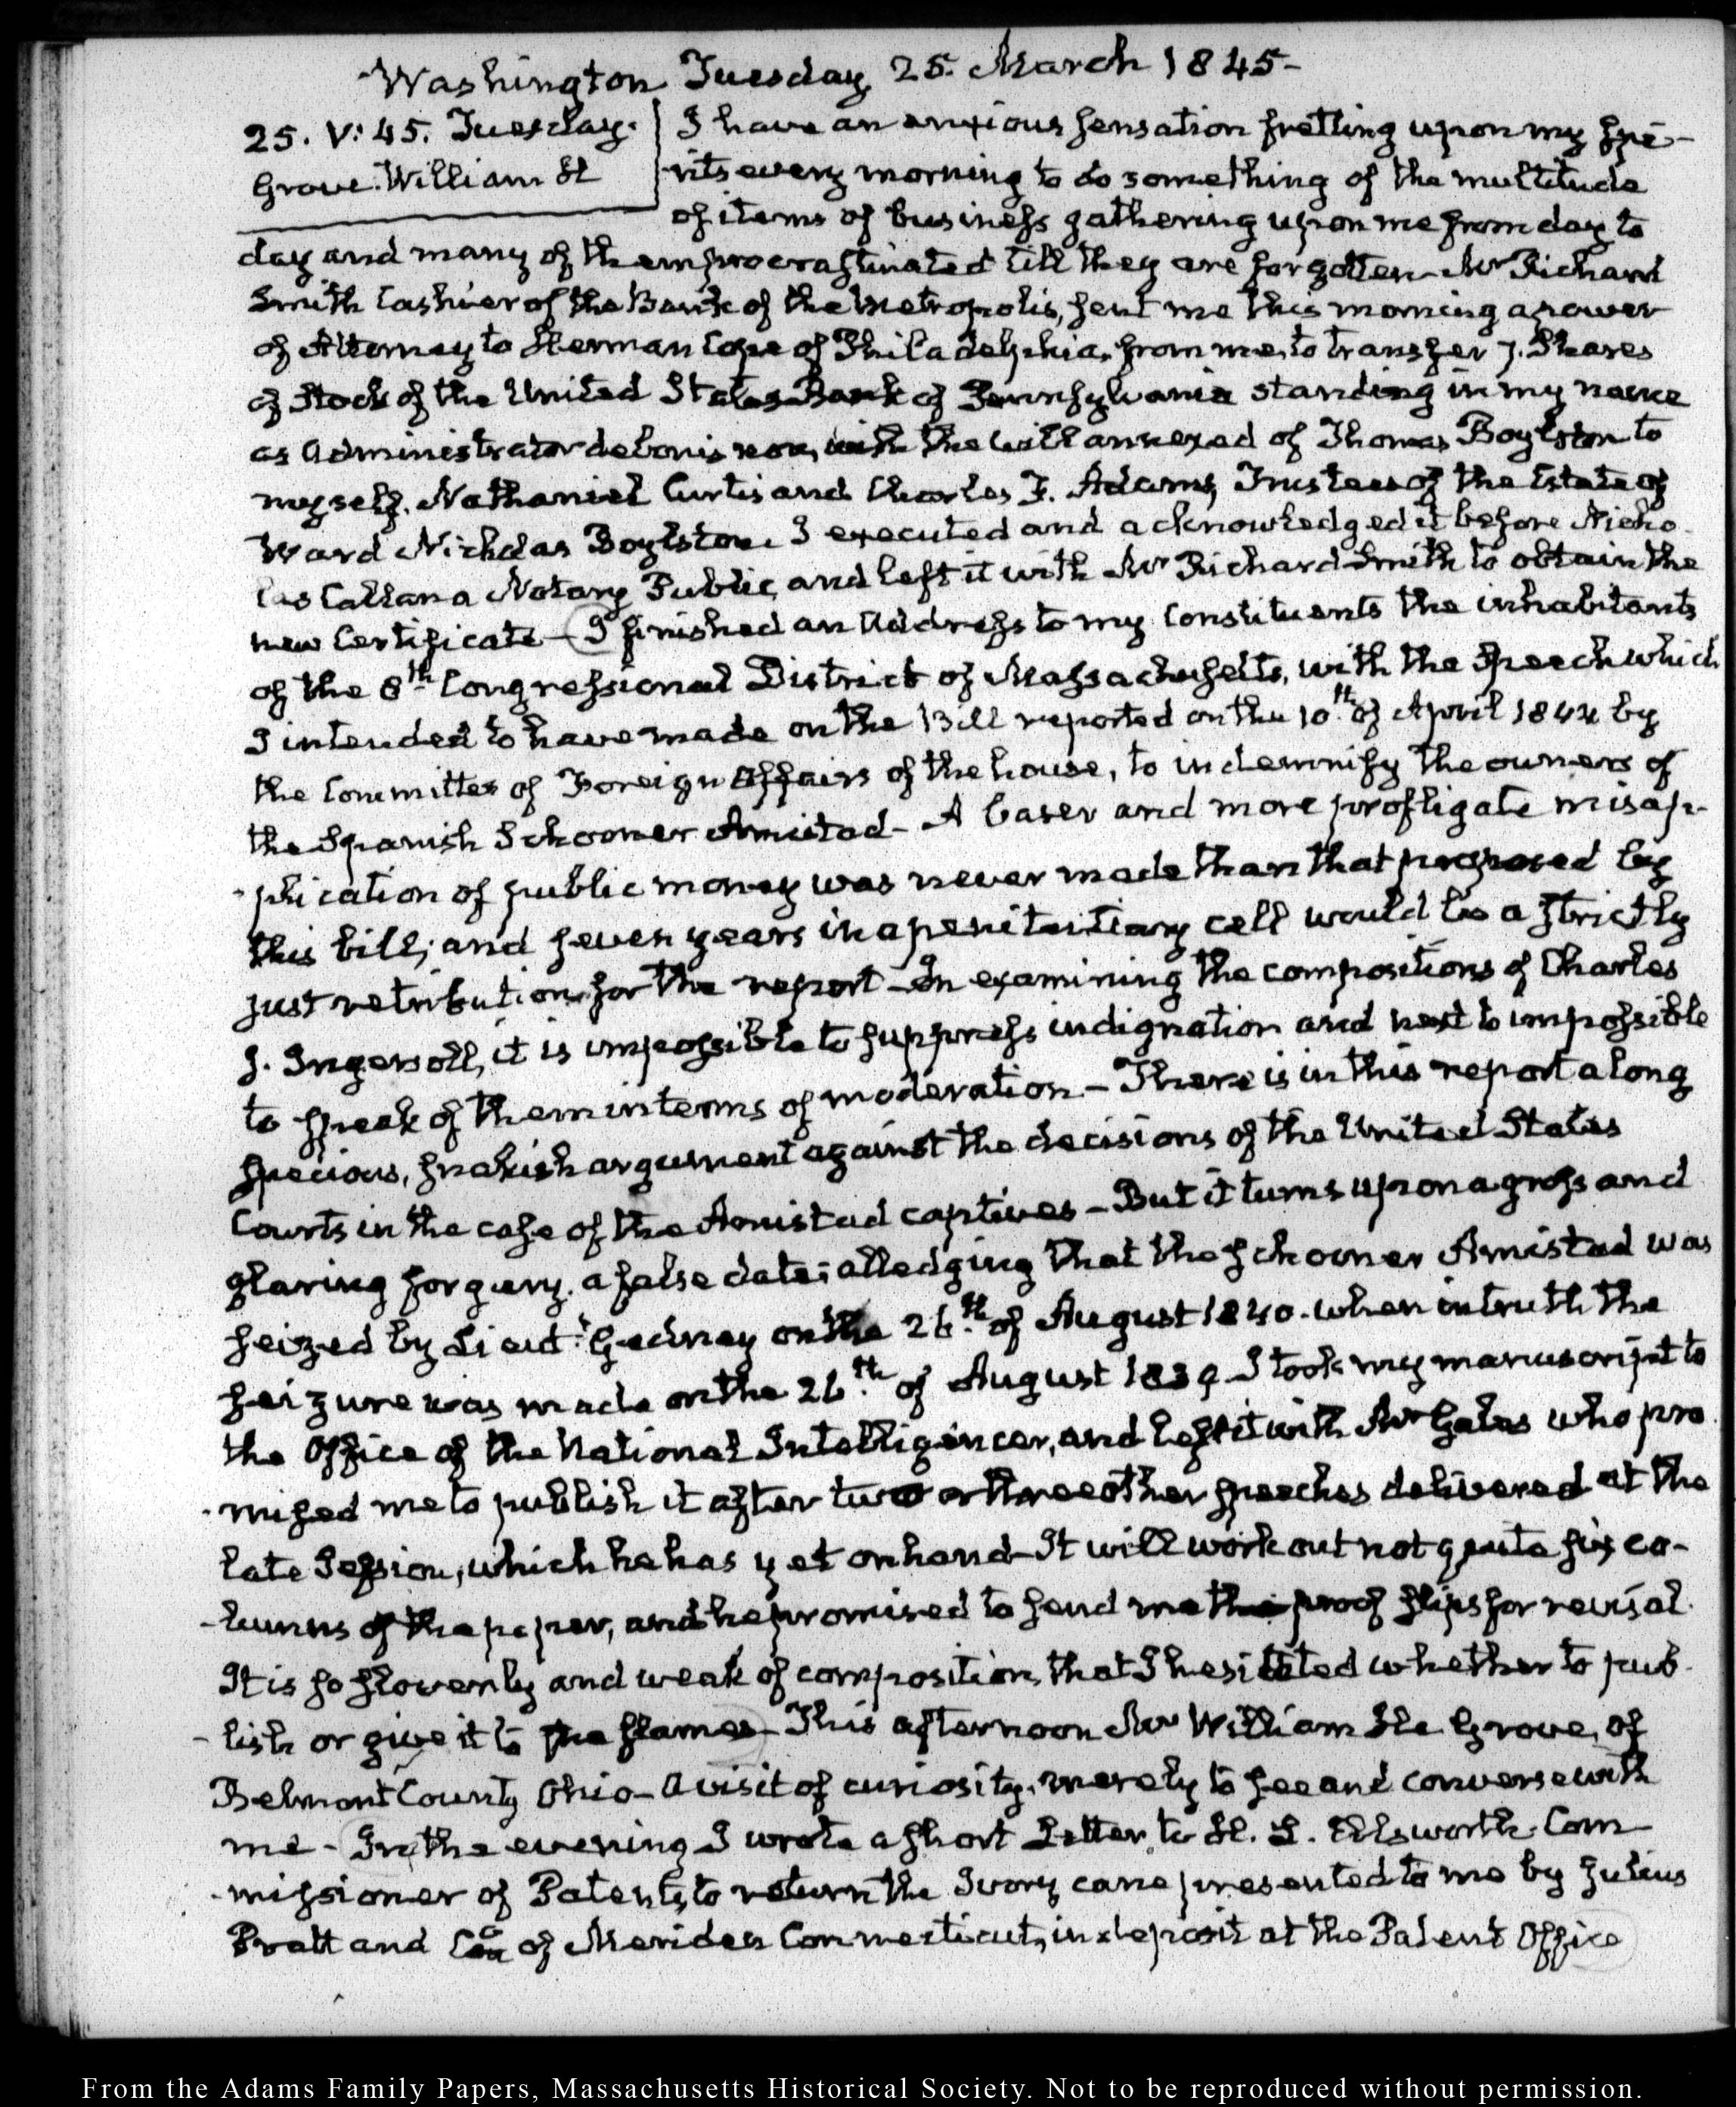 Washington Tuesday 25. March 1845-
25. V: 45. Tuesday.
Grove. William H
I have an anxious sensation fretling upon my spi-
rits every morning to do something of the multitude
of items of business gathering upon me from day to
day and many of them procrastinated till they are forgotten - Mr Richard
Smith Cashier of the Bank of the Metropolis, sent me this morning a power
of Attorney to Herman Cope of Philadelphia, from me, to transfer 7. Shares
of Stock of the United States Bank of Pennsylvania standing in my name
as Administrator de bonis non, with the will annexed of Thomas Boylston to
myself, Nathaniel Curtis and Charles F. Adams, Trustees of the Estate of
Ward Nicholas Boylston. I executed and acknowledged it before Nicho
las Callan a Notary Public, and left it with Mr Richard Smith to obtain the
new Certificate - I finished an Address to my Constituents the inhabitants
of the 8th Congressional District of Massachusetts, with the Speech which
I intended to have made on the Bill reported on the 10th of April 1844 by
the Committee of Foreign Affairs of the house, to indemnify the owners of
the Spanish Schooner Amistad - A baser and more profligate misap-
-plication of public money was never made than that proposed by
this bill; and seven years in a penitentiary cell would be a strictly
just retribution for the report - In examining the compositions of Charles
J. Ingersoll, it is impossible to suppress indignation and next to impossible
to speak of them in terms of moderation - There is in this report a long
specious, snakish argument against the decisions of the United States
Courts in the case of the Amistad captives - But it turns upon a gross and
glaring forgery. a false date; alledging that the schooner Amistad was
seized by Lieut. Gedney on the 26th of August 1840. when in truth the
seizure was made on the 26th of August 1839 I took my manuscript to
the Office of the National Intelligencer, and left it with Mr Gales who pro
-mised me to publish it after two or three other speeches delivered at the
late Session, which he has yet on hand - It will work out not quite six co-
-lumns of the paper, and he promised to send me the proof slips for revisal.
It is so slovenly and weak of composition, that I hesitated whether to pub-
-lish or give it to the flames - This afternoon Mr William H Grove, of
Belmont County Ohio - a visit of curiosity, merely to see and converse with
me - In the evening I wrote a short Letter to H. L. Ellsworth Com
-missioner of Patents, to return the Ivory cane presented to me by Julius
Pratt and Co of Meriden Connecticut, in deposit at the Patent Office
From the Adams Family Papers, Massachusetts Historical Society. Not to be reproduced without permission.